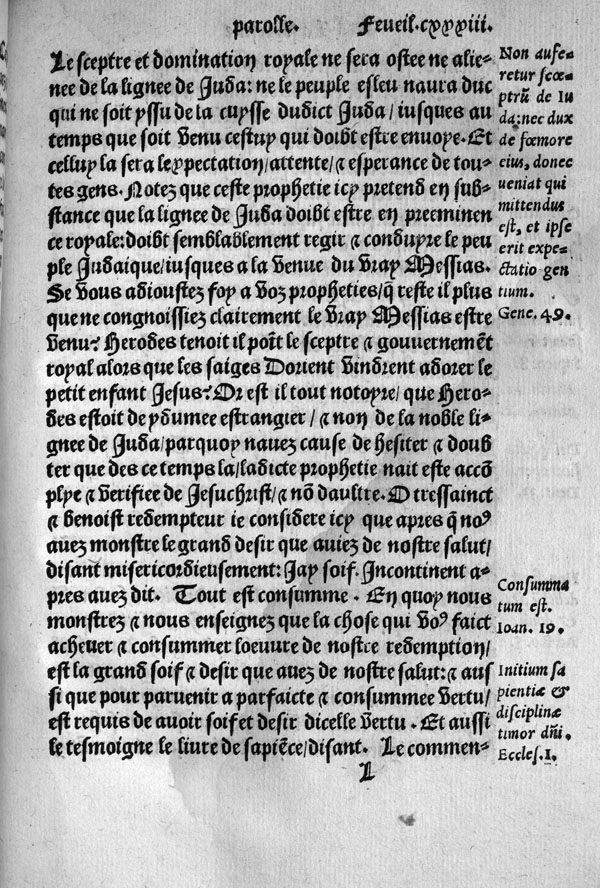 parolle. Feueil.cxxxiii.
Le sceptre et domination royale ne sera ostee ne alie-
nee de la lignee de Juda: ne le peuple esleu naura duc
qui ne soit yssu de la cuysse dudict Juda/ iusques au
temps que soit venu cestuy qui doibt estre enuoye. Et
celluy la sera lexpectation/ attente/ ⁊ esperance de tou-
tes gens. Notez que ceste prophetie icy pretend en sub-
stance que la lignee de Juda doibt estre en preeminen
ce royale: doibt semblablement regir ⁊ conduyre le peu
ple Judaique/ iusques a la venue du vray Messias.
Se vous adioustez foy a voz propheties/ q̃ reste il plus
que ne congnoissiez clairement le vray Messias estre
venu? Herodes tenoit il poĩt le sceptre ⁊ gouuernemẽt
royal alors que les saiges Dorient vindrent adorer le
petit enfant Jesus? Or est il tout notoyre/ que Hero-
des estoit de ydumee estrangier/ ⁊ non de la noble li-
gnee de Juda/ parquoy nauez cause de hesiter ⁊ doub
ter que des ce temps la/ ladicte prophetie nait este accõ
plye ⁊ verifiee de Jesuchrist/ ⁊ nõ daultre. O tressainct
⁊ benoist redempteur ie considere icy que apres q̃ noꝰ
auez monstre le grand desir que auiez de nostre salut/
disant misericordieusement: Jay soif. Incontinent a-
pres auez dit. Tout est consumme. En quoy nous
monstrez ⁊ nous enseignez que la chose qui voꝰ faict
acheuer ⁊ consummer loeuure de nostre redemption/
est la grand soif ⁊ desir que auez de nostre salut: ⁊ aus
si que pour paruenir a parfaicte ⁊ consummee vertu/
est requis de auoir soif et desir dicelle vertu. Et aussi
le tesmoigne le liure de sapiẽce/ disant. Le commen-
L
Non aufe-
retur scœ-
ptrũ de Iu
da: nec dux
de fœmore
eius, donec
ueniat qui
mittendus
est, et ipse
erit expe-
ctatio gen
tium.
Gene. 49.
Consumma
tum est.
Ioan. 19.
Initium sa
pientiæ &
disciplinæ
timor dñi.
Eccles. I.